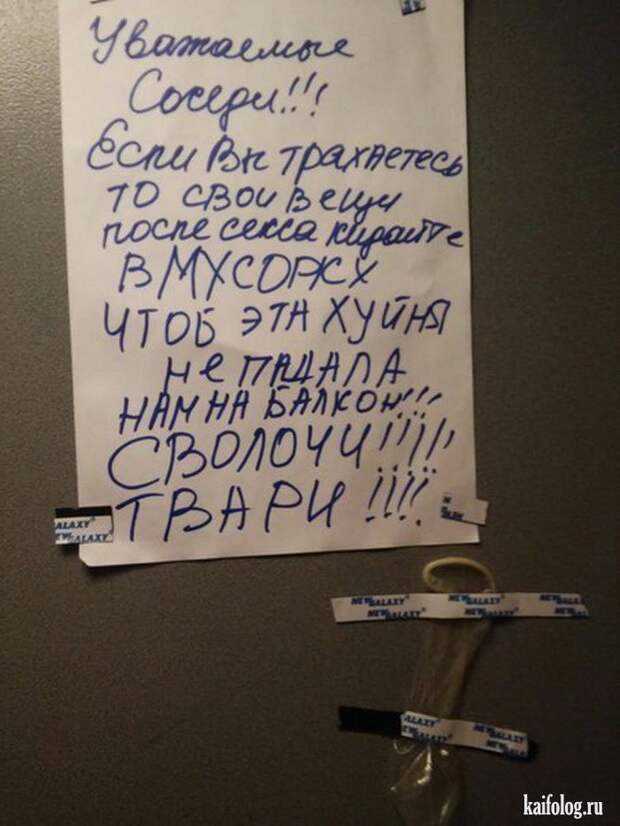 Уважаемые
Соседи!!!
Если Вы трахаетесь
то свои вещи
после секса кидайте
В МУСОРКУ
ЧТОБ ЭТА ХУЙНЯ
не ПАДАЛА
НАМ НА БАЛКОН!!!
СВОЛОЧИ!!!!!
ТВАРИ!!!!
ALAXY®
EW GALAXY®
NEW GALAXY® NEW GALAXY® NEW GALA
NEW GALAXY® NEW GALAXY®
ALAXY® NEW GALAXY®
EW GALAXY® NEW
kaifolog.ru